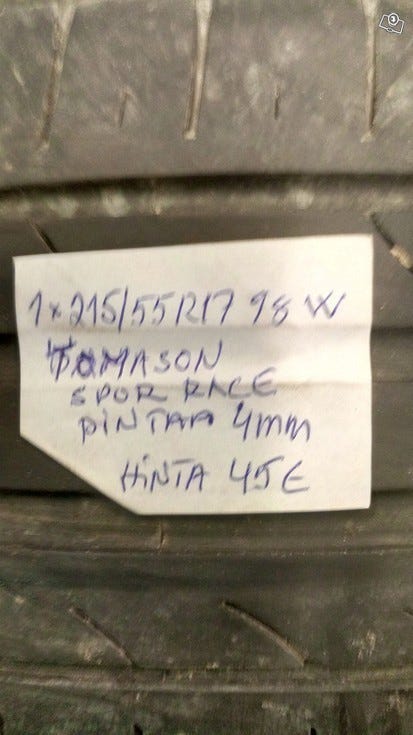 1x215/55R17 98 W
TOMASON
SPOR RACE
PINTAA 4mm
HINTA 45€